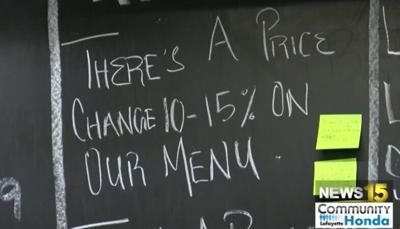 THERE'S A PRICE
CHANGE 10-15% ON
OUR MENU.
9
NEWS 15
COMMUNITY
Lafayette Honda